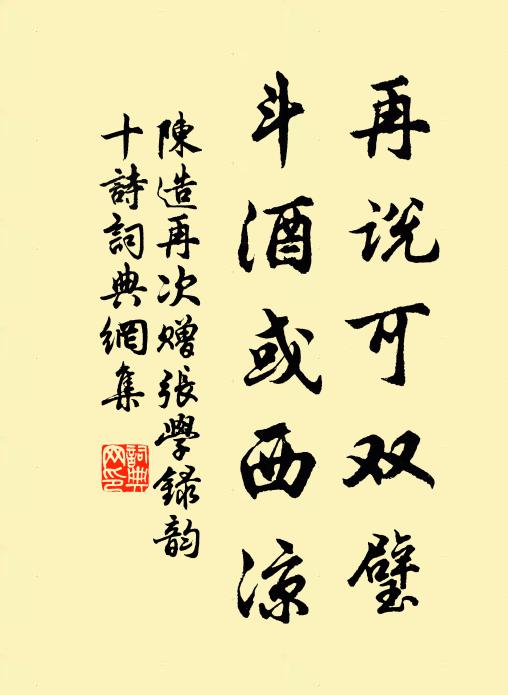 再说可双璧
斗酒或西凉
陳造再次赠張學録韵
十詩詞典網集
詞典
网印